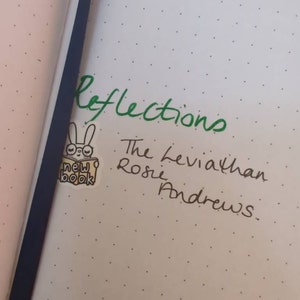 Reflections
new
book
The Leviathan
Rosie
Andrews.